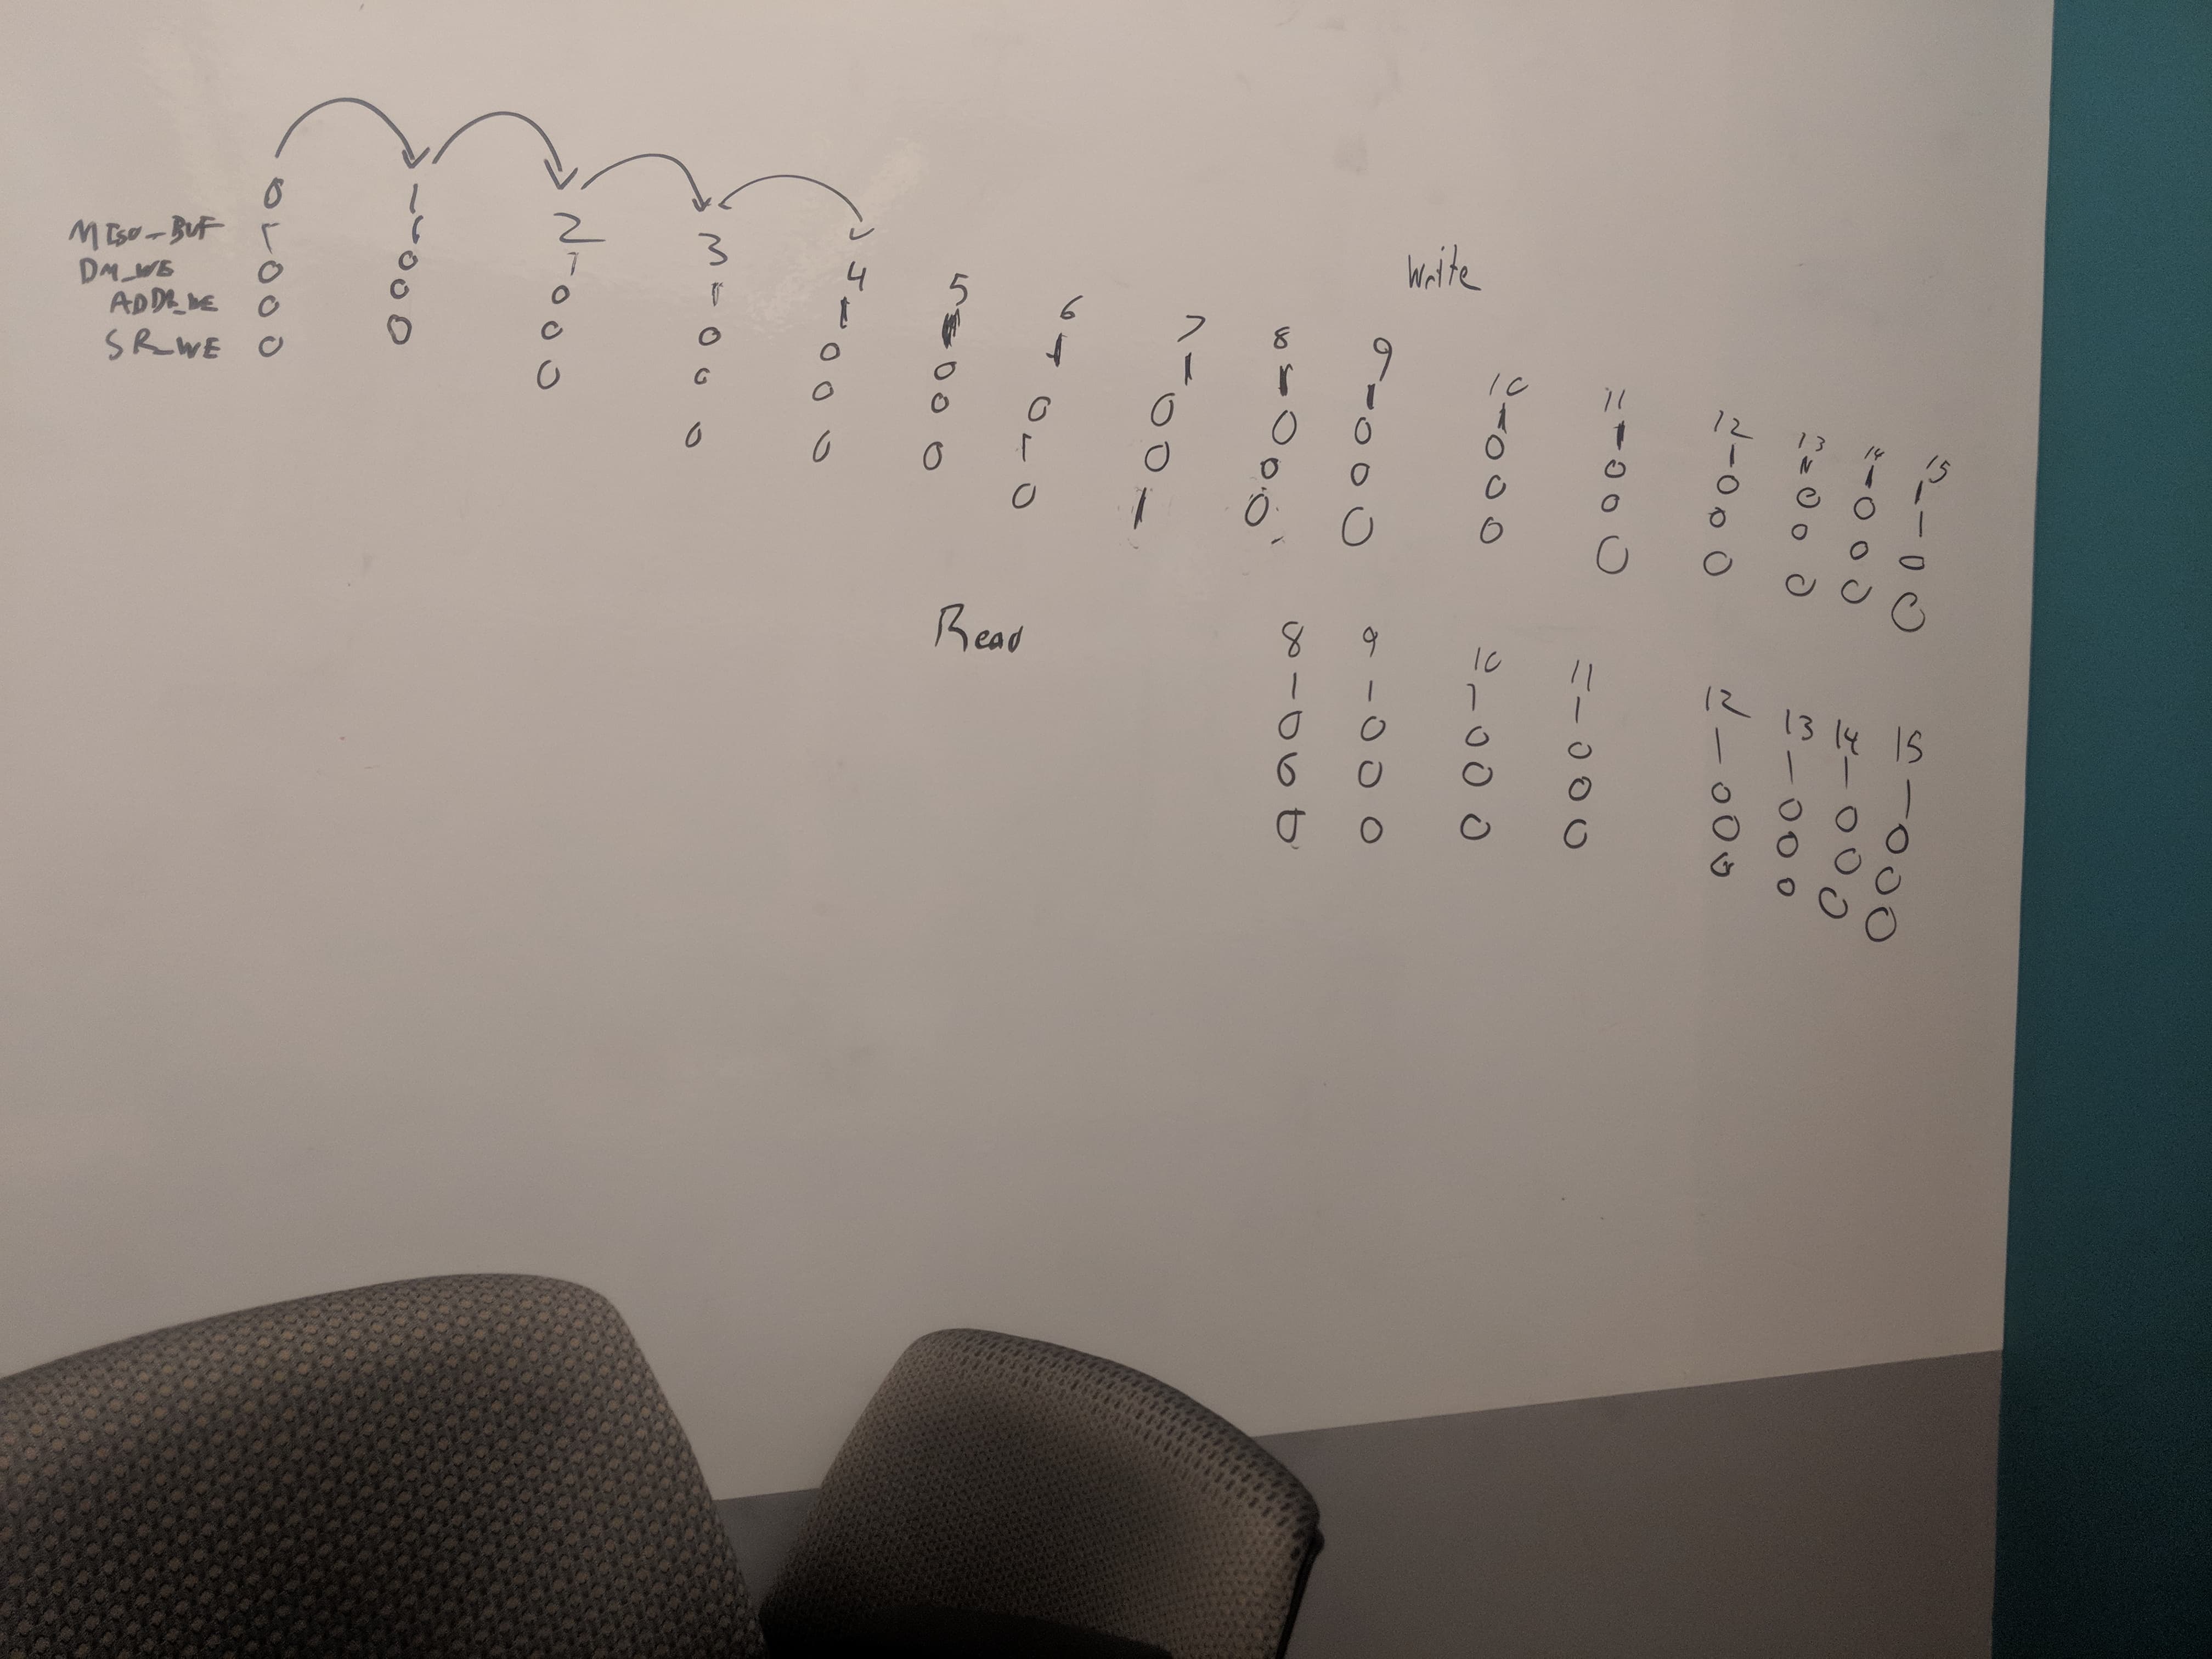 0 1 2 3 4 5 6 7 8 9 10 11 12 13 14 15
Write
MISO_BUF 1 1 1 1 1 1 1 1 1 1 1 1 1 1 1
DM_WE 0 0 0 0 0 0 0 0 0 0 0 0 0 0 0 1
ADDR_WE 0 0 0 0 0 0 1 0 0 0 0 0 0 0 0 0
SR_WE 0 0 0 0 0 0 0 1 0 0 0 0 0 0 0 0
Read
8 9 10 11 12 13 14 15
1 1 1 1 1 1 1 1
0 0 0 0 0 0 0 0
0 0 0 0 0 0 0 0
0 0 0 0 0 0 0 0